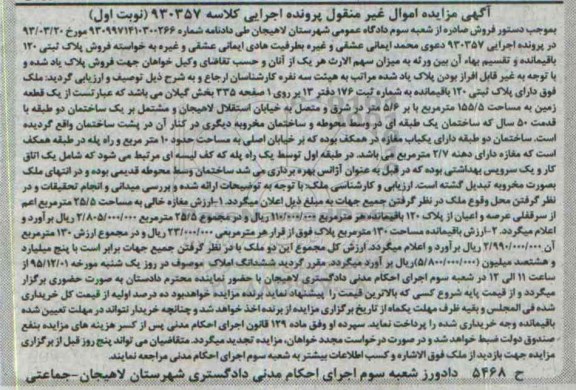 آگهی مزایده اموال غیر منقول پرونده اجرایی کلاسه ۹۳۰۳۵۷ (نوبت اول)
بموجب دستور فروش صادره از شعبه سوم دادگاه عمومی شهرستان لاهیجان طی دادنامه شماره ۹۳۰۹۹۷۱۴۱۰۳۰۰۲۶۶ مورخ ۹۳/۰۳/۲۰
در پرونده اجرایی ۹۳۰۳۵۷ دعوی محمد ایمانی عشقی و غیره بطرفیت هادی ایمانی عشقی و غیره به خواسته فروش پلاک ثبتی ۱۲۰
باقیمانده و تقسیم بهاء آن بین ورثه به میزان سهم الارث هر یک از آنان و حسب تقاضای وکیل خواهان جهت فروش پلاک یاد شده و
با توجه به غیر قابل افراز بودن پلاک یاد شده مراتب به هیئت سه نفره کارشناسان ارجاع و به شرح ذیل توصیف و ارزیابی گردید: ملک
فوق دارای پلاک ثبتی ۱۲۰ باقیمانده به شماره ثبت ۱۷۶ دفتر ۱۲ بر روی ۱ صفحه ۳۳۵ بخش گیلان می باشد که عبارتست از یک قطعه
زمین به مساحت ۱۵۵/۵ مترمربع با بر ۵/۶ متر از شرق و متصل به خیابان استقلال لاهیجان و مشتمل بر یک ساختمان دو طبقه با
قدمت ۵۰ سال که ساختمان یک طبقه ای در وسط محوطه و ساختمان مخروبه دیگری در کنار آن در پشت ساختمان واقع گردیده
است. ساختمان دو طبقه دارای یکباب مغازه در همکف بوده که بر خیابان اصلی به مساحت حدود ۱۰ متر مربع و راه پله در طبقه همکف
است که مغازه دارای دهنه ۲/۷ مترمربع می باشد. در طبقه اول توسط یک راه پله که کف لیسه ای مرتبط می شود که شامل یک اتاق
کار و یک سرویس بهداشتی بوده که در قبل به عنوان آژانس بهره برداری می شد ساختمان وسط محوطه قدیمی بوده و در انتهای ملک
بصورت مخروبه تبدیل گشته است. ارزیابی و کارشناسی ملک: با توجه به توضیحات ارائه شده و بررسی میدانی و انجام تحقیقات و در
نظر گرفتن محل وقوع ملک در نظر گرفتن جمیع جهات به مبلغ ذیل اعلان میگردد. ۱-ارزش مغازه خالی به مساحت ۲۵/۵ مترمربع اعم
از سرقفلی عرصه و اعیان از پلاک ۱۲۰ باقیمانده هر مترمربع ۱۱۰/۰۰۰/۰۰۰ ریال و در مجموع ۲۵/۵ مترمربع ۲/۸۰۵/۰۰۰/۰۰۰ ریال برآورد و
اعلام میگردد. ۲-ارزش باقیمانده مساحت ۱۳۰ مترمربع پلاک فوق از قرار هر مترمربعی ۲۳/۰۰۰/۰۰۰ ریال و در مجموع ارزش ۱۳۰ مترمربع
آن ۲/۹۹۰/۰۰۰/۰۰۰ ریال برآورد و اعلام میگردد. ارزش کل مجموع این دو ملک با در نظر گرفتن جمیع جهات برابر است با پنج میلیارد
و هشتصد میلیون (۵/۸۰۰/۰۰۰/۰۰۰)ریال بر آورد میگردد. مقرر گردید ششدانگ املاک موصوف در روز یک شنبه مورخه ۹۵/۱۲/۰۱ از
ساعت ۱۱ الی ۱۲ در شعبه سوم اجرای احکام مدنی دادگستری لاهیجان با حضور نماینده محترم دادستان به صورت حضوری برگزار
میگردد و از قیمت پایه شروع کسی که بالاترین قیمت را پیشنهاد نماید برنده مزایده خواهدبود ده درصد اولیه از قیمت کل خریداری
شده فی المجلس و بقیه ظرف مهلت یکماه از تاریخ برگزاری مزایده از برنده اخذ خواهد شد و چنانچه خریدار نتواند در مهلت تعیین شده
باقیمانده وجه خریداری شده را پرداخت نماید. سپرده او وفق ماده ۱۲۹ قانون اجرای احکام مدنی پس از کسر هزینه های مزایده بنفع
صندوق دولت ضبط خواهد شد و در صورت درخواست مجدد خواهان، مزایده تجدید میگردد. متقاضیان می تواند پنج روز قبل از برگزاری
مزایده جهت بازدید از ملک فوق الاشاره و کسب اطلاعات بیشتر به شعبه سوم اجرای احکام مدنی مراجعه نمایند.
ح ۵۴۶۸ دادورز شعبه سوم اجرای احکام مدنی دادگستری شهرستان لاهیجان-جماعتی